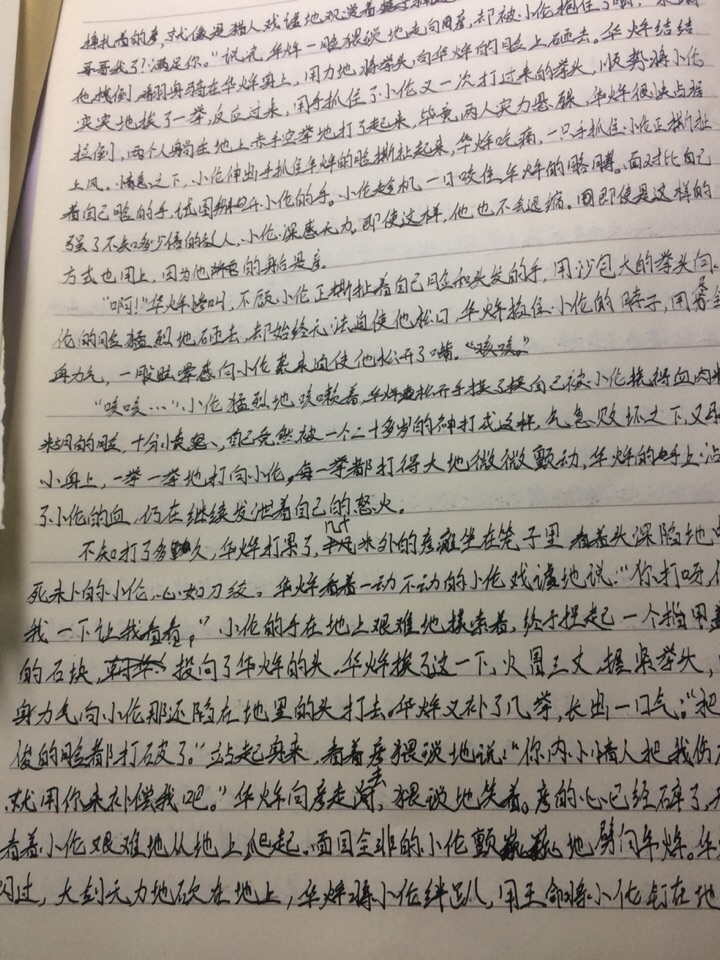 挣扎着的彦，就像是猎人戏谑地观望着
哥哥我了！满足你。"说完，华烨一脸猥琐地走向彦，却被小伦抱住了
他拽倒，翻身骑在华烨身上，用力地将拳头向华烨的脸上砸去。华烨结结
实实地挨了一拳，反应过来，用手抓住了小伦又一次打过来的拳头，顺势将小伦
拉倒，两个人躺在地上赤手空拳地打了起来，毕竟两人实力悬殊，华烨很快占据
上风。情急之下，小伦伸出手抓住华烨的脸撕扯起来，华烨吃痛，一只手抓住小伦正撕扯
着自己脸的手，试图掰开小伦的手。小伦趁机一口咬住华烨的胳膊。面对比自己
强了不知多少倍的敌人，小伦深感无力，即使这样，他也不会退缩。即使是这样的
方式也用上，因为他的身后是彦。
"啊！"华烨惨叫，不顾小伦正撕扯着自己脸和头发的手，用沙包大的拳头向小
伦的脸猛烈地砸去，却始终无法迫使他松口，华烨掐住小伦的脖子，用尽全
身力气，一股窒息感向小伦袭来迫使他松开了嘴。"咳咳。"
"咳咳…"小伦猛烈地咳嗽着，华烨松开手摸了摸自己被小伦挠得血肉
模糊的脸，十分恼怒，自己竟然被一个二十多岁的神打成这样，气急败坏之下，又
小身上，一拳一拳地打向小伦。每一拳都打得大地微微颤动，华烨的手上沾
了小伦的血，仍在继续发泄着自己的怒火。
不知打了多久，华烨打累了，几米外的彦瘫坐在笼子里，看着头深陷地
死未卜的小伦，心如刀绞。华烨看着一动不动的小伦戏谑地说："你打呀，
我一下让我看看，"小伦的手在地上艰难地摸索着，终于捏起一个指甲盖
的石块，投向了华烨的头。华烨挨了这一下，火冒三丈，握紧拳头，
身力气向小伦那还陷在地里的头打去。华烨又补了几拳，长出一口气："把
俊的脸都打破了。"站起身来，看着彦猥琐地说："你内小情人把我伤
就用你来补偿我吧。"华烨向彦走去，猥琐地笑着。彦的心已经碎了，
看着小伦艰难地从地上爬起。面目全非的小伦颤巍巍地劈向华烨。华
闪过，大剑无力地砍在地上，华烨将小伦绊趴，用王命将小伦钉在地